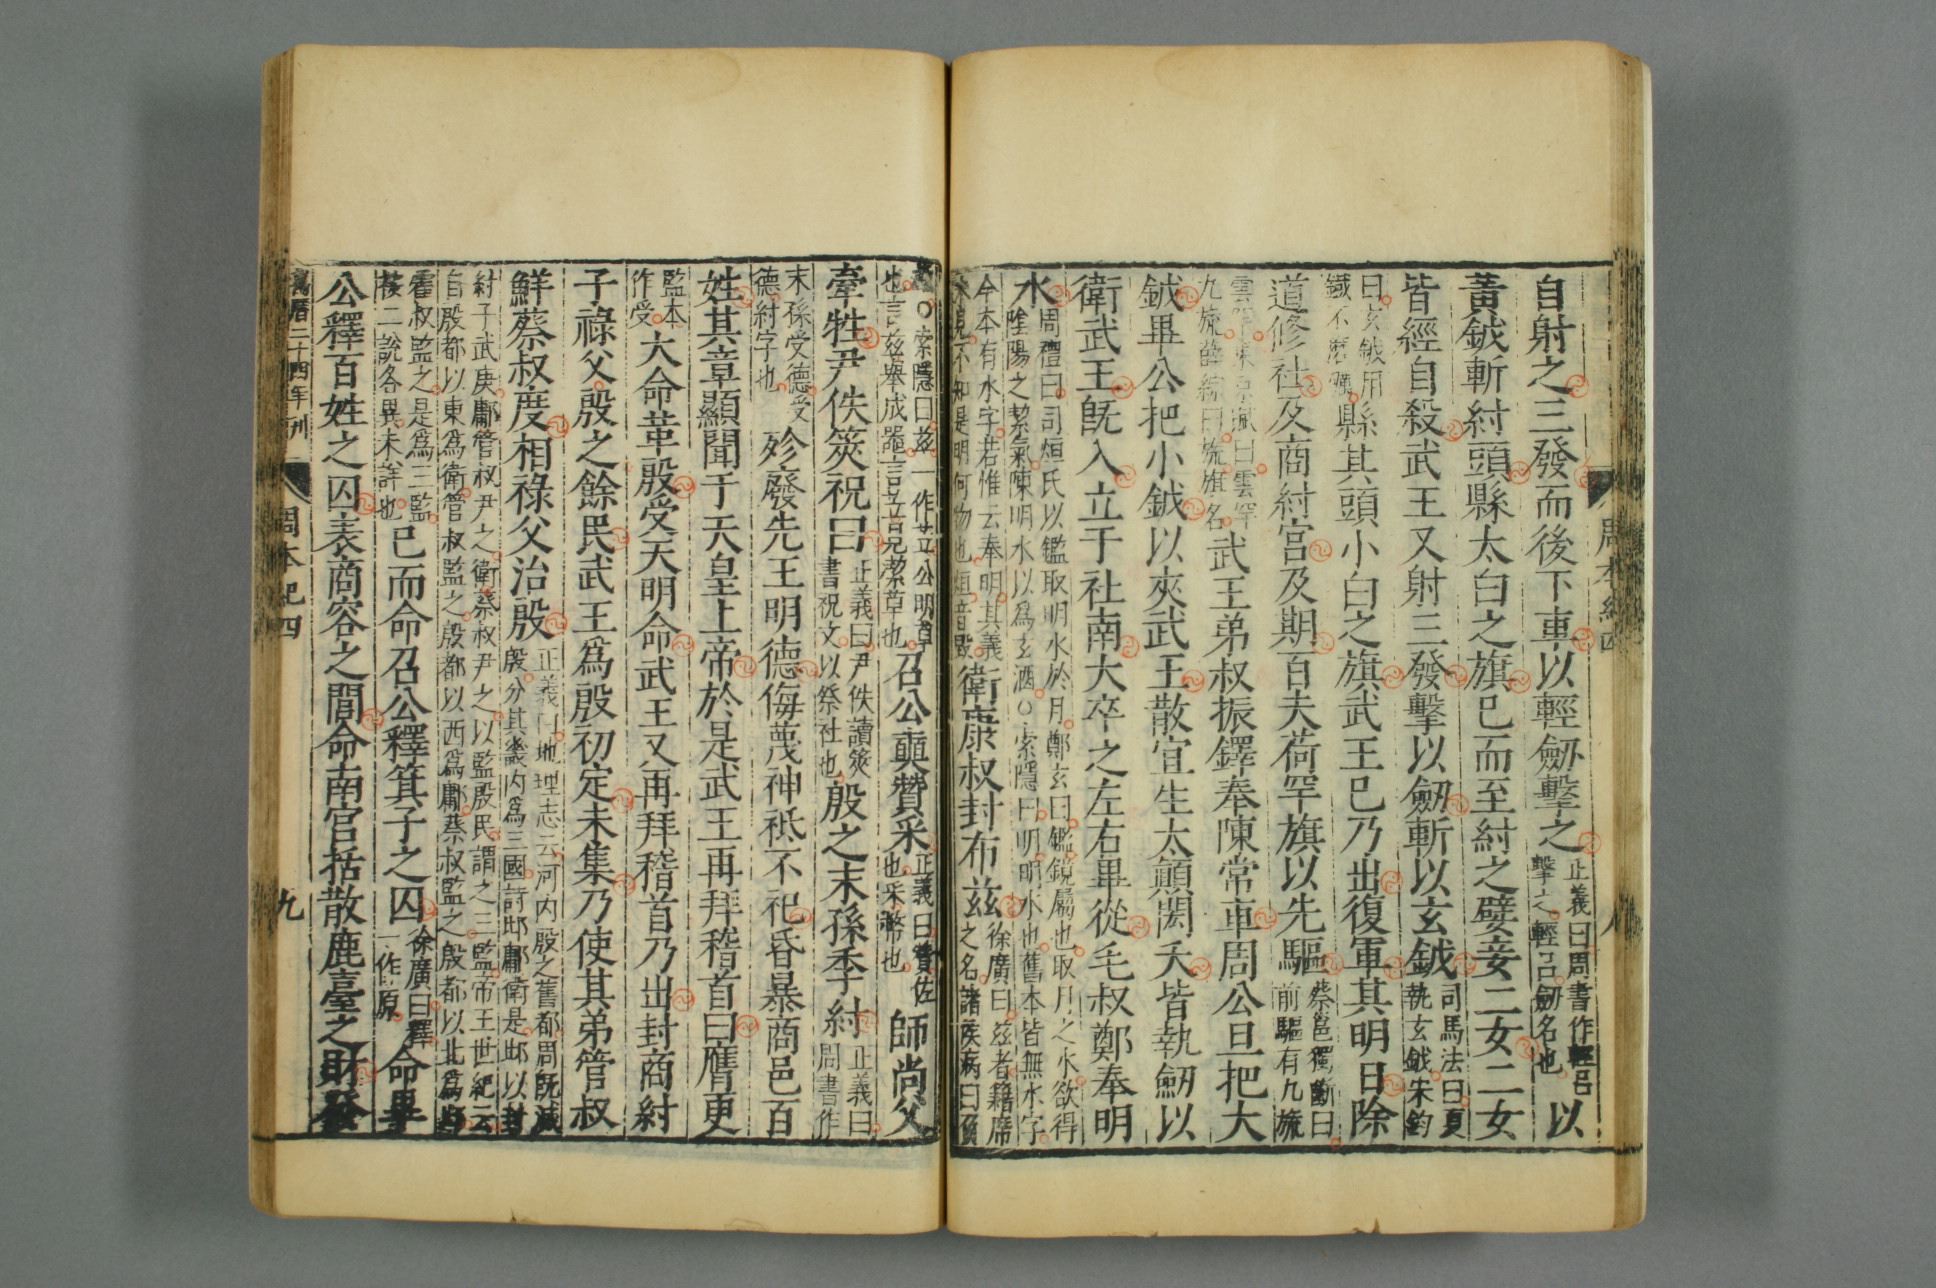 周本紀四
自射之三發而後下車以輕劒擊之正義曰周書作輕呂擊之輕呂劒名也以
黃鉞斬紂頭縣太白之旗已而至紂之嬖妾二女二女
皆經自殺武王又射三發擊以劒斬以玄鉞司馬法曰夏執玄鉞宋鈞
曰玄鉞用鐵不磨礪縣其頭小白之旗武王已乃出復軍其明日除
道修社及商紂宮及期百夫荷罕旗以先驅蔡邕獨斷曰前驅有九旒
雲罕東京賦曰雲罕九旒薛綜曰旒旗名武王弟叔振鐸奉陳常車周公旦把大
鉞畢公把小鉞以夾武王散宜生太顛閎夭皆執劒以
衛武王旣入立于社南大卒之左右畢從毛叔鄭奉明
水周禮曰司烜氏以鑑取明水於月鄭玄曰鑑鏡屬也取月之水欲得陰陽之潔氣陳明水以爲玄酒○索隱曰明明水也舊本皆無水字
今本有水字若惟云奉明其義未見不知是明何物也烜音毀衛康叔封布茲徐廣曰茲者籍席之名諸疾病曰負
茲○索隱曰茲一作苙公明草也言茲舉成器言苙見潔草也召公奭贊采正義曰贊佐也采幣也師尚父
牽牲尹佚筴祝曰正義曰尹佚讀筴書祝文以祭社也殷之末孫季紂正義曰周書作
末孫受德受德紂字也殄廢先王明德侮蔑神祇不祀昏暴商邑百
姓其章顯聞于天皇上帝於是武王再拜稽首曰膺更
監本作受大命革殷受天明命武王又再拜稽首乃出封商紂
子祿父殷之餘民武王爲殷初定未集乃使其弟管叔
鮮蔡叔度相祿父治殷正義曰地理志云河內殷之舊都周旣滅殷分其畿內爲三國詩邶鄘衛是邶以封
紂子武庚鄘管叔尹之衛蔡叔尹之以監殷民謂之三監帝王世紀云自殷都以東爲衛管叔監之殷都以西爲鄘蔡叔監之殷都以北爲邶
霍叔監之是爲三監按二說各異未詳也已而命召公釋箕子之囚徐廣曰釋一作原命畢
公釋百姓之囚表商容之閭命南宮括散鹿臺之財發
萬曆二十四年刊
周本紀四
九